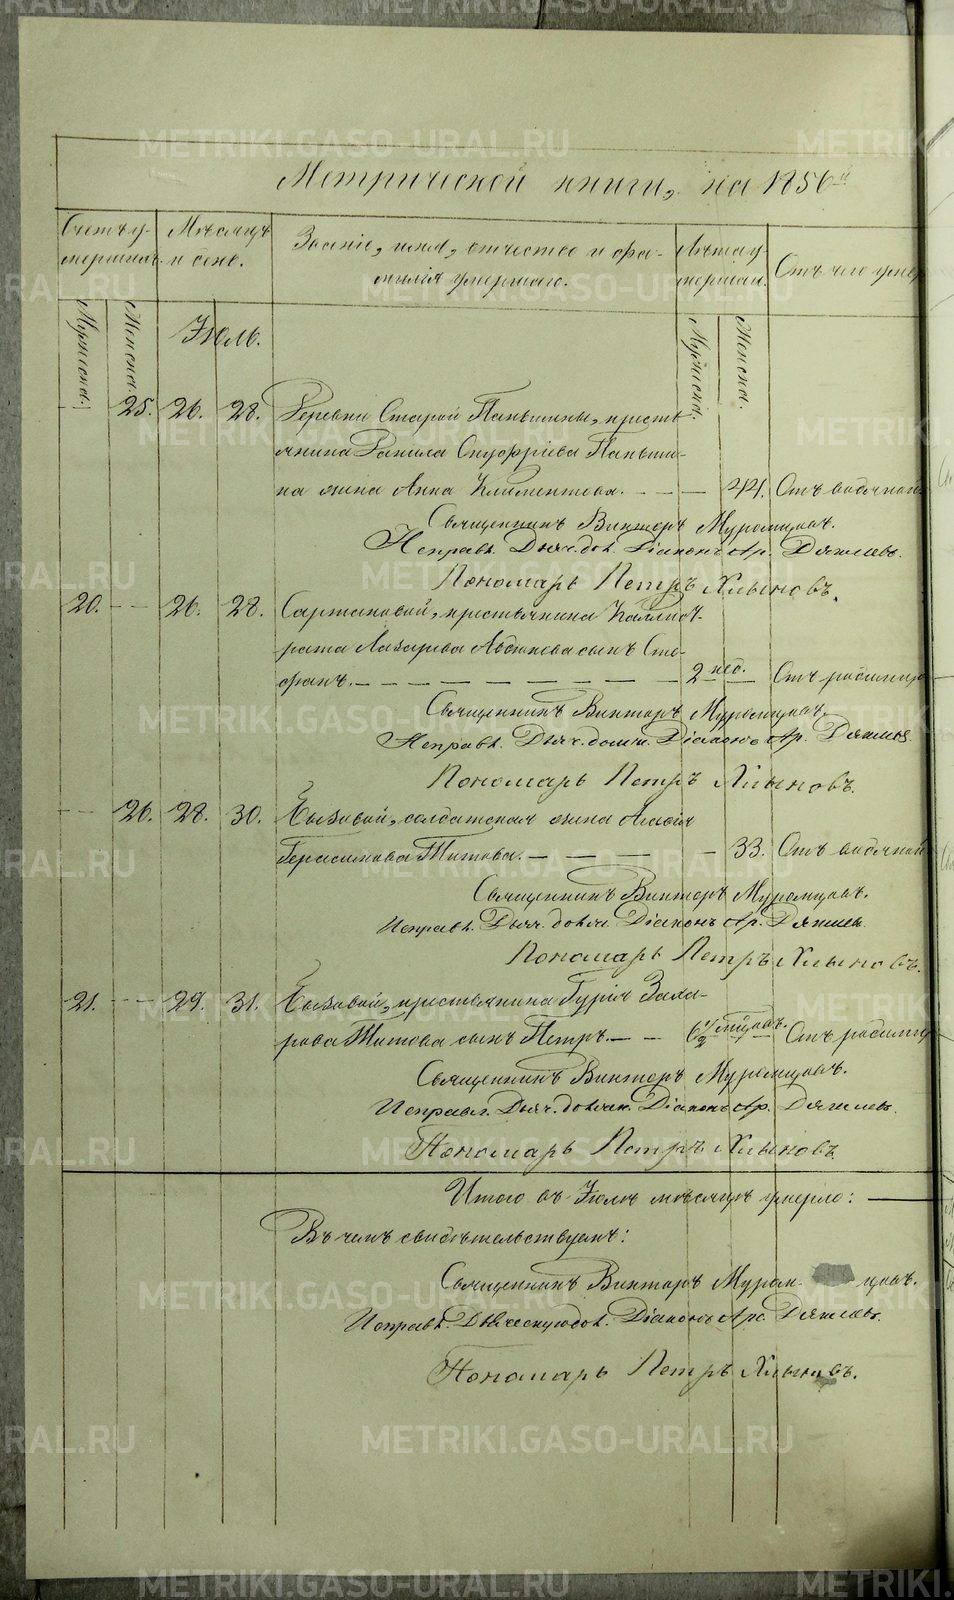 Метрической книги, на 1856й
Счетъ у-
мершихъ.
Мѣсяцъ
и день.
Званіе, имя, отчество и фа-
милія умершаго.
Лѣта у-
мершаго.
Отъ чего умер
Мужеска.
Женска.
Іюль.
Мужеска.
Женска.
25. 26. 28. Деревни Старой Паньшины, кресть-
янина Данила Онуфріева Паньши-
на жена Анна Климентова. — — — 44. Отъ водяной
Священникъ Викторъ Муромцовъ.
Исправл. Дьяч. дол. Діаконъ Ар. Дягилевъ.
Пономарь Петръ Хлыновъ.
20. — — 26. 28. крестьянина Каллист-
рата Лазарева сынъ Сте-
фанъ. — — — — — — — — 2 нед. Отъ родимца
Священникъ Викторъ Муромцовъ.
Исправл. Дьяч. должн. Діаконъ Ар. Дягилевъ.
Пономарь Петръ Хлыновъ.
— — 26. 28. 30. солдатская жена
Герасимова Титова. — — — — 33. Отъ водяной
Священникъ Викторъ Муромцовъ.
Исправл. Дьяч. должн. Діаконъ Ар. Дягилев.
Пономарь Петръ Хлыновъ.
21. — — 29. 31. крестьянина Гурія Заха-
рова Титова сынъ Петръ. — — 6½ мѣцовъ. Отъ родимца
Священникъ Викторъ Муромцовъ.
Исправл. Дьяч. должн. Діаконъ Ар. Дягилевъ.
Пономарь Петръ Хлыновъ.
Итого въ Іюлѣ мѣсяцѣ умерло: —
Въ чемъ свидѣтельствуемъ:
Священникъ Викторъ Муром цовъ.
Исправл. Дьяческую дол. Діаконъ Ар. Дягилевъ.
Пономарь Петръ Хлыновъ.
METRIKI.GASO-URAL.RU